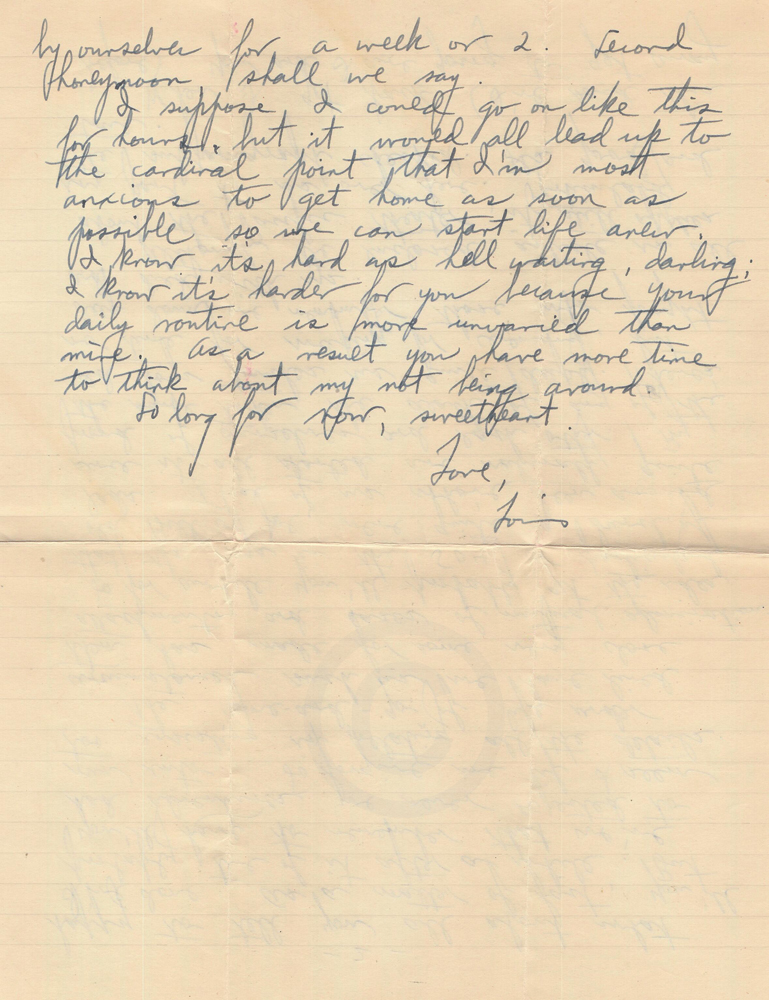 by ourselves for a week or 2. Second
honeymoon shall we say.
I suppose I could go on like this
for hours, but it would all lead up to
the cardinal point that I'm most
anxious to get home as soon as
possible so we can start life anew.
I know it's hard as hell waiting, darling;
I know it's harder for you because your
daily routine is more unvaried than
mine. As a result you have more time
to think about my not being around.
So long for now, sweetheart.
Love,